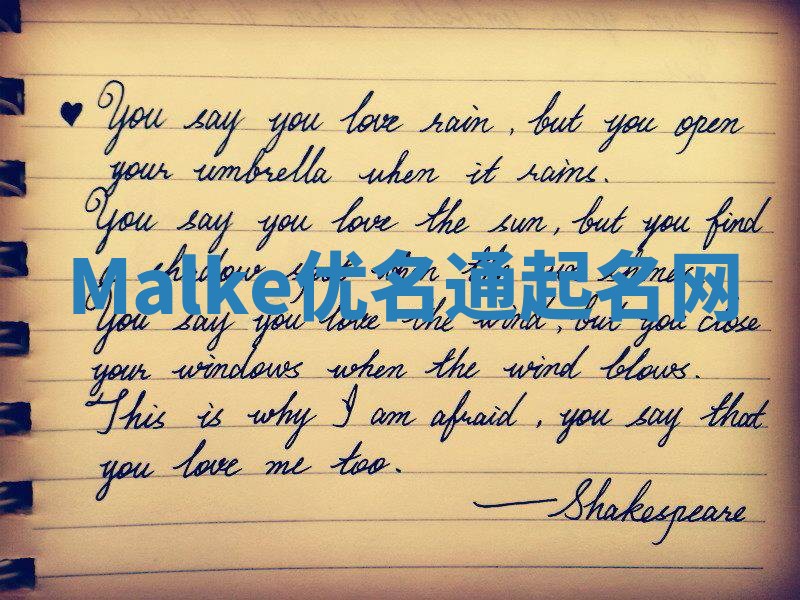 ♥ You say you love rain, but you open
your umbrella when it rains.
You say you love the sun, but you find
a shadow spot when the sun shines.
Malke优名通起名网
You say you love the wind, but you close
your windows when the wind blows.
This is why I am afraid, you say that
you love me too.
—Shakespeare